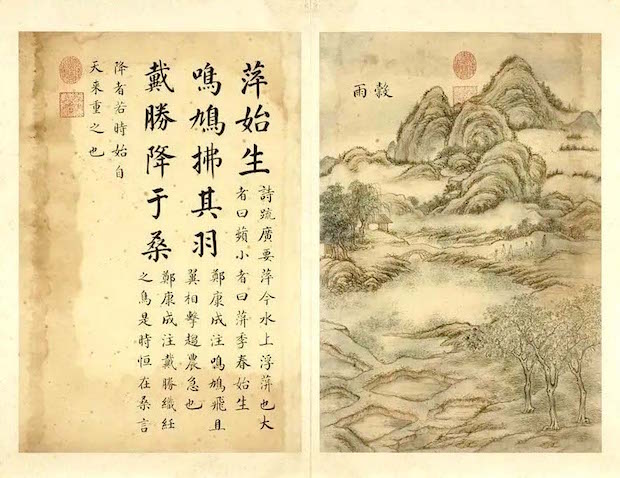 穀雨
萍始生
詩疏廣要萍今水上浮萍也大
者曰蘋小者曰萍季春始生
鳴鳩拂其羽
鄭康成注鳴鳩飛且
翼相擊趨農急也
戴勝降于桑
鄭康成注戴勝織紝
之鳥是時恒在桑言
降者若時始自
天來重之也